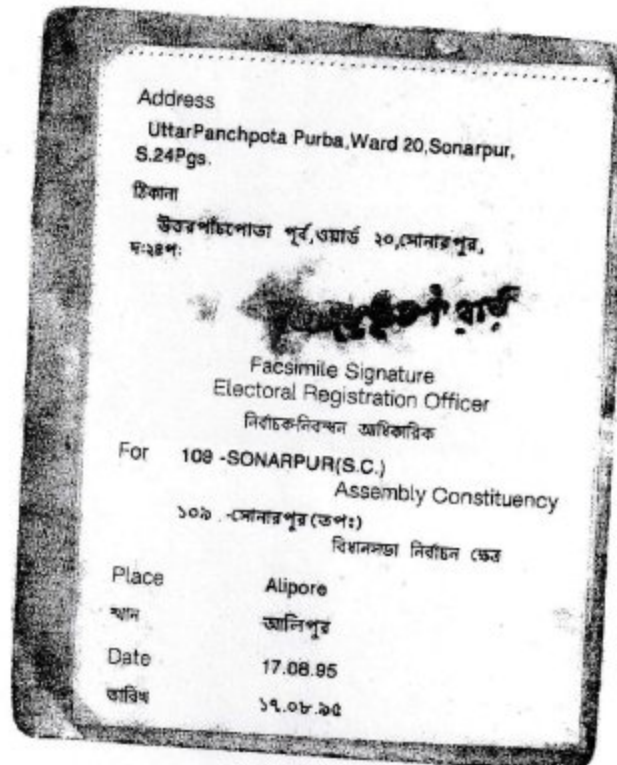 Address
UttarPanchpota Purba,Ward 20,Sonarpur,
S.24Pgs.
ঠিকানা
উত্তরপাঁচপোতা পূর্ব,ওয়ার্ড ২০,সোনারপুর,
দ:২৪প:
Facsimile Signature
Electoral Registration Officer
নির্বাচক-নিবন্ধন আধিকারিক
For 109 -SONARPUR(S.C.)
Assembly Constituency
১০৯ .-সোনারপুর(তপঃ)
বিধানসভা নির্বাচন ক্ষেত্র
Place Alipore
স্থান আলিপুর
Date 17.08.95
তারিখ ১৭.০৮.৯৫